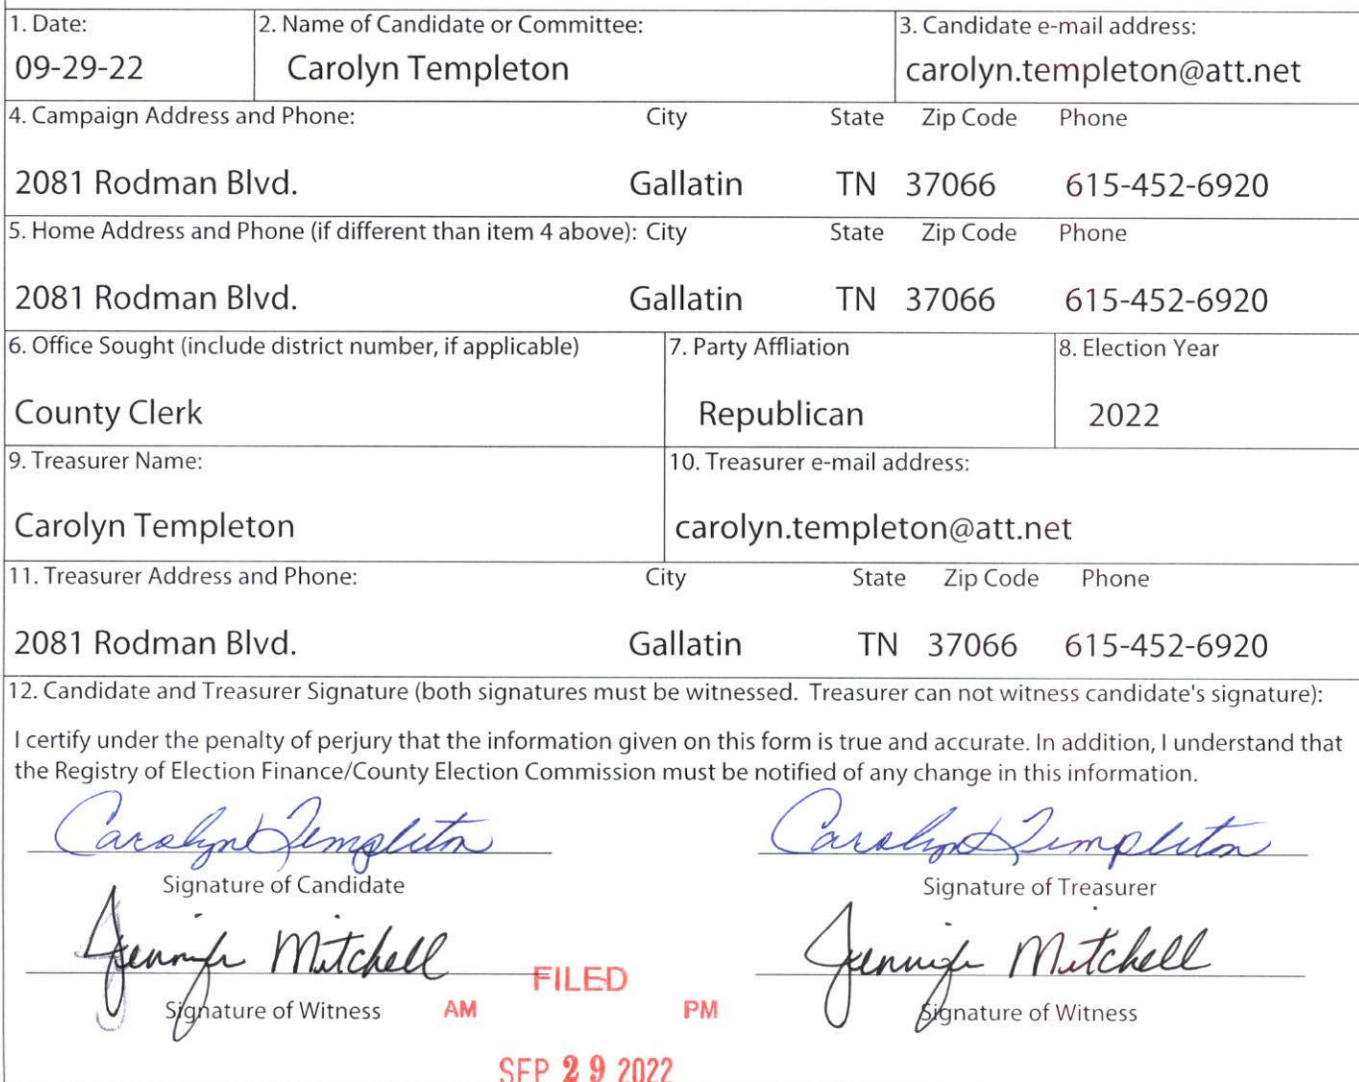 1. Date: 2. Name of Candidate or Committee: 3. Candidate e-mail address:
09-29-22 Carolyn Templeton carolyn.templeton@att.net
4. Campaign Address and Phone: City State Zip Code Phone
2081 Rodman Blvd. Gallatin TN 37066 615-452-6920
5. Home Address and Phone (if different than item 4 above): City State Zip Code Phone
2081 Rodman Blvd. Gallatin TN 37066 615-452-6920
6. Office Sought (include district number, if applicable) 7. Party Affliation 8. Election Year
County Clerk Republican 2022
9. Treasurer Name: 10. Treasurer e-mail address:
Carolyn Templeton carolyn.templeton@att.net
11. Treasurer Address and Phone: City State Zip Code Phone
2081 Rodman Blvd. Gallatin TN 37066 615-452-6920
12. Candidate and Treasurer Signature (both signatures must be witnessed. Treasurer can not witness candidate's signature):
I certify under the penalty of perjury that the information given on this form is true and accurate. In addition, I understand that
the Registry of Election Finance/County Election Commission must be notified of any change in this information.
Carolyn Templeton Carolyn Templeton
Signature of Candidate Signature of Treasurer
Jennifer Mitchell FILED Jennifer Mitchell
Signature of Witness AM PM Signature of Witness
SEP 29 2022